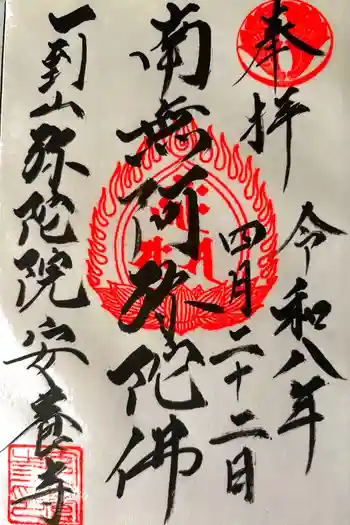 奉拝
令和八年
四月二十二日
南無阿弥陀佛
一到山弥陀院安養寺